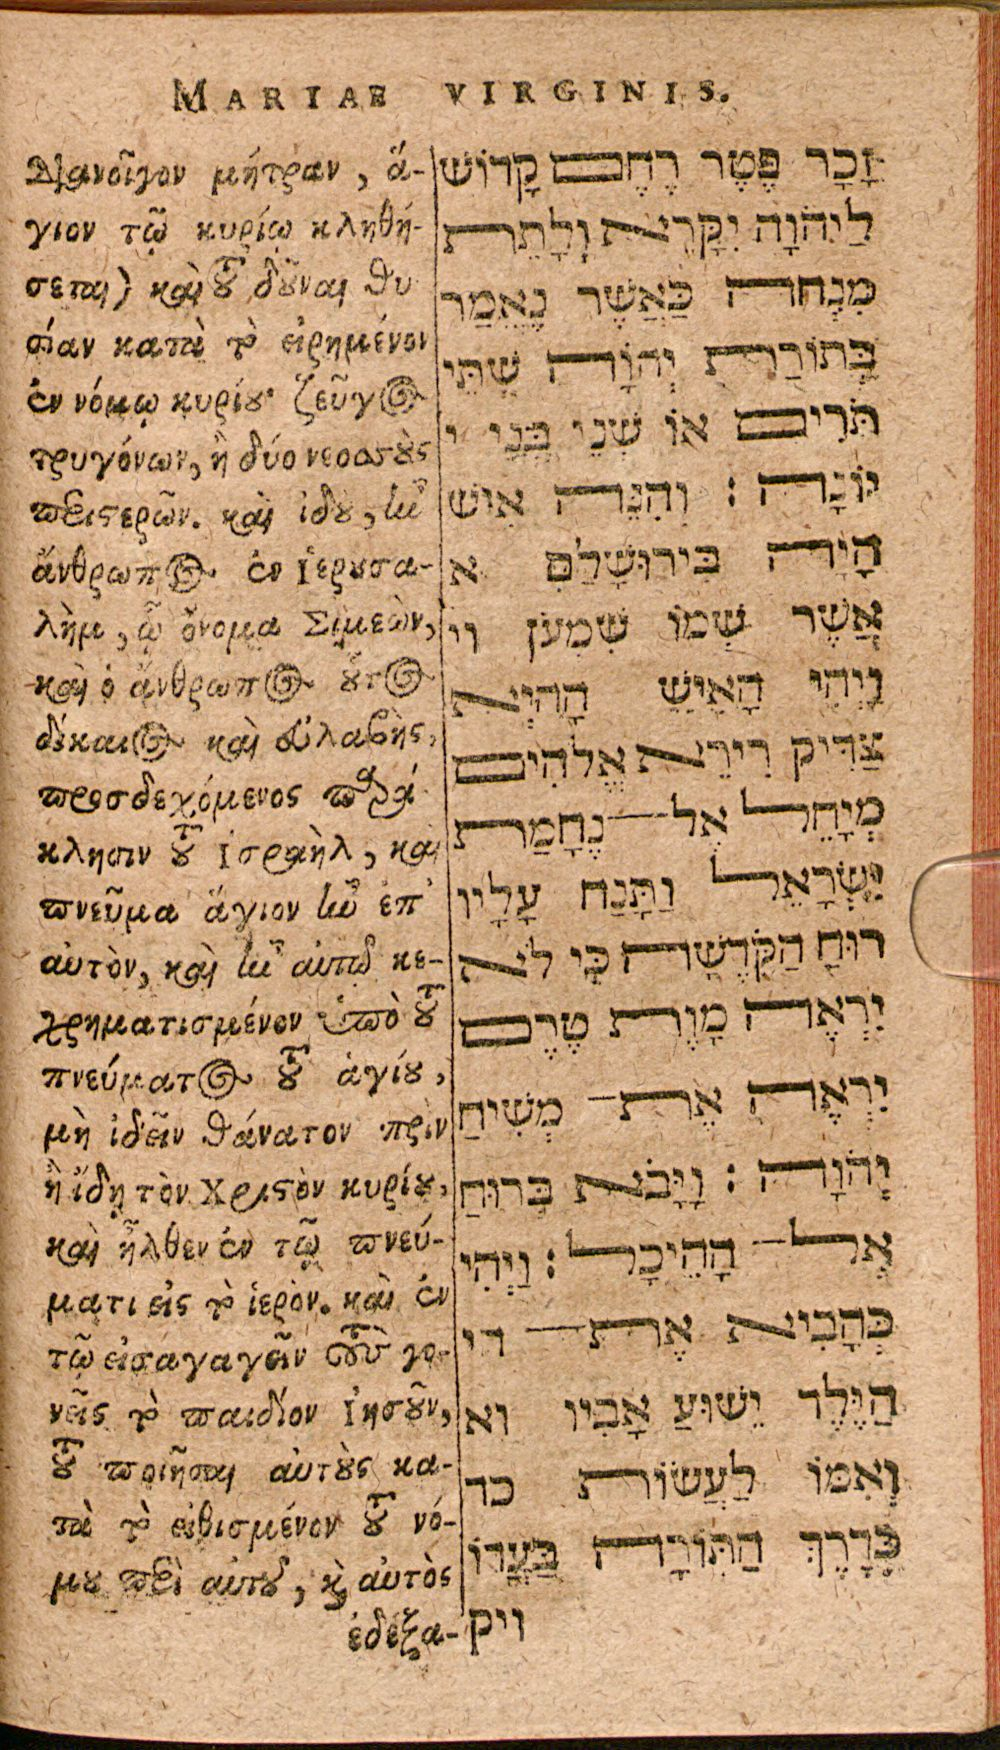 MARIAE VIRGINIS.
διανοῖγον μήτραν, ἅ-
γιον τῷ κυρίῳ κληθή-
σεται) καὶ τοῦ δοῦναι θυ
σίαν κατὰ τὸ εἰρημένον
ἐν νόμῳ κυρίου· ζεῦγος
τρυγόνων, ἢ δύο νεοσσοὺς
περιστερῶν. καὶ ἰδου, ἦν
ἄνθρωπος ἐν Ἱερουσα-
λὴμ, ᾧ ὄνομα Σιμεὼν,
καὶ ὁ ἄνθρωπος οὗτος
δίκαιος καὶ εὐλαβὴς,
προσδεχόμενος παρά
κλησιν τοῦ Ἰσραὴλ, και
πνεῦμα ἅγιον ἦν ἐπ'
αὐτὸν, καὶ ἦν αὐτῷ κε-
χρηματισμένον ὑπὸ τοῦ
πνεύματος τοῦ ἁγίου,
μὴ ἰδεῖν θάνατον πρὶν
ἢ ἴδῃ τὸν Χριστὸν κυρίου,
καὶ ἦλθεν ἐν τῷ πνεύ-
ματι εἰς τὸ ἱερὸν. καὶ ἐν
τῷ εἰσαγαγεῖν τοὺς γο-
νεῖς τὸ παιδίον Ἰησοῦν,
τοῦ ποιῆσαι αὐτοὺς κα-
τὰ τὸ εἰθισμένον τοῦ νό-
μου περὶ αὐτοῦ, καὶ αὐτὸς
ἐδέξα-
זָכָר פֶּטֶר רֶחֶם קָדוֹשׁ
לַיהֹוָה יִקָּרֵא וְלָתֵת
מִנְחה כַּאֲשֶׁר נֶאֱמַר
בְּתוֹרַת יְהוָֹה שְׁתֵּי
תֹּרִים אוֹ שְׁנֵי בְּנֵי י
יוֹנָה : וְהִנֵּה אִישׁ
הָיָה בִּירוּשָׁלַםִ א
אֲשֶׁר שְׁמוֹ שִׁמְעֹן וי
וַיְהִי הָאִישׁ הַהִיא
צַדִּיק וִירֵא אֱלֹהִים
מְיַחֵל אֶל־ נֶחָמַת
יִשְׂרָאֵל וַתָּנַח עָלָיו
רוּחַ הַקֹּדֶשָׁה כִּי לֹא
יִרְאֶה מָוֶת טֶרֶם
יִרְאֶה אֶת־ מְשִׁיחַ
יְהֹוָה : וַיָּבֹא בְּרוּחַ
אֶל־ הַהֵיכָל : וַיְהִי
כְּהָבִיא אֶת־ הי
הַיֶּלֶד יֵשׁוּעַ אָבִיו וא
וְאִמּוֹ לַעֲשׂוֹת כד
כְּדֶרֶךְ הַתּוֹרָה בַּעֲדוֹ
ויק